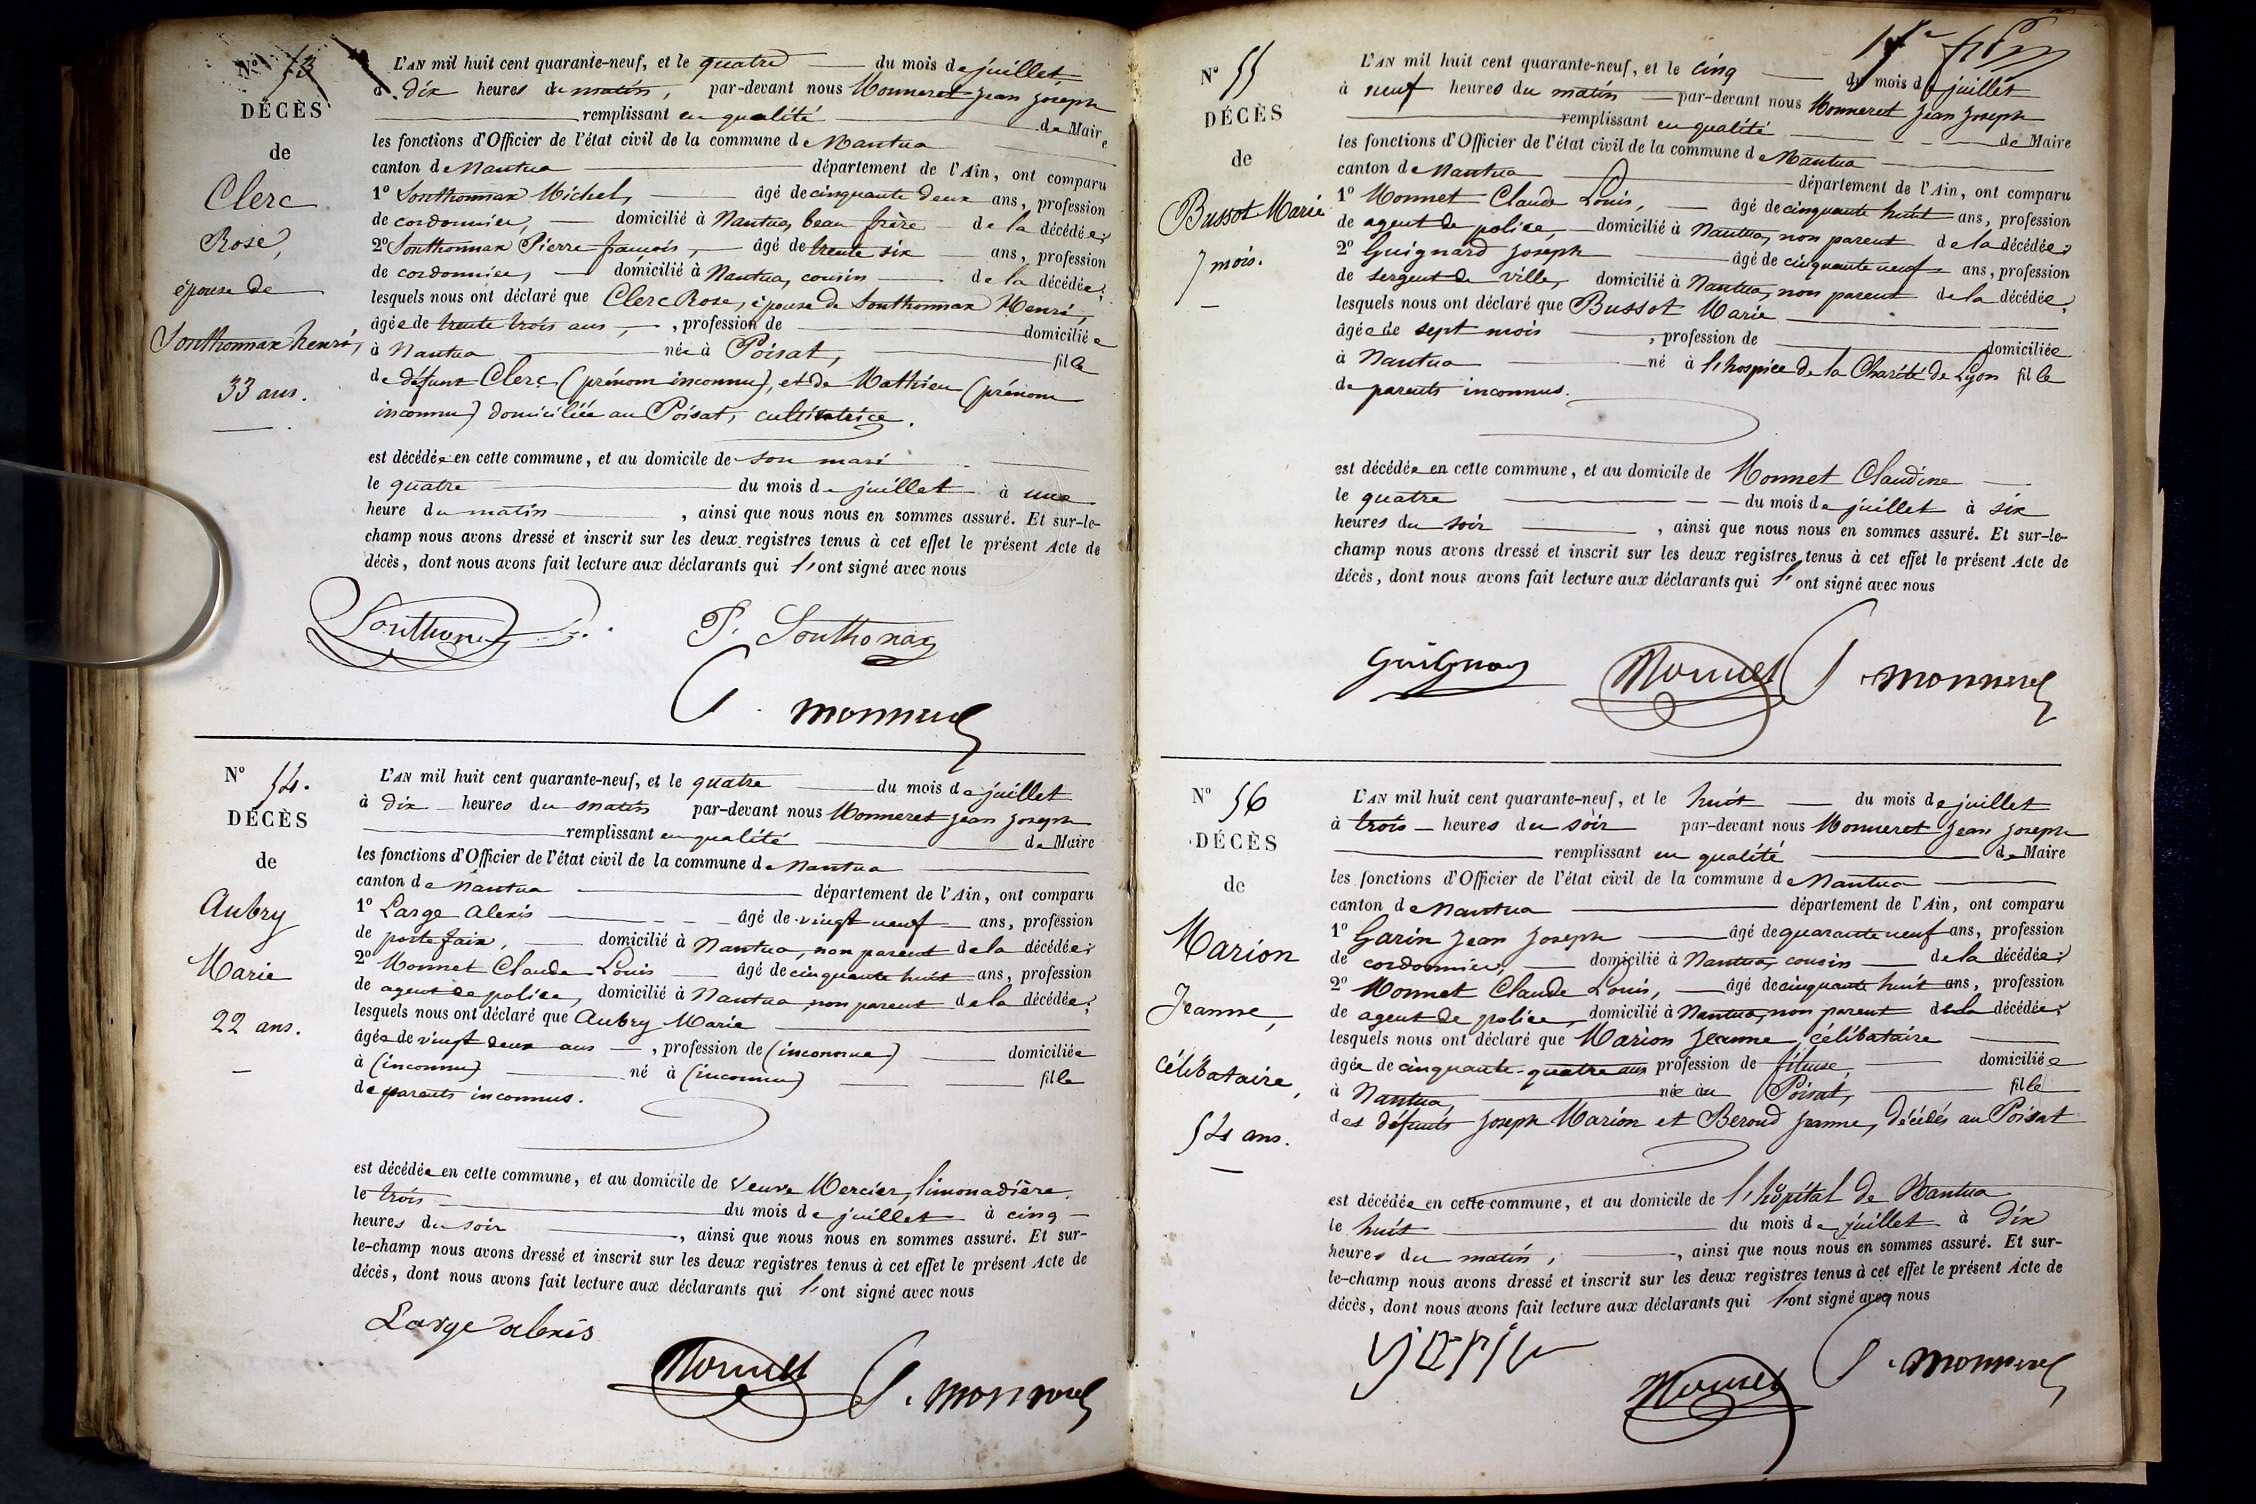 N° 53
DÉCÈS
de
Clerc
Rose,
épouse de
Southonnax henri,
33 ans.
L'AN mil huit cent quarante-neuf, et le quatre du mois de juillet
à dix heures du matin, par-devant nous Monneret Jean Joseph
remplissant en qualité de Maire
les fonctions d'Officier de l'état civil de la commune de Nantua
canton de Nantua département de l'Ain, ont comparu
1° Southonnax Michel, âgé de cinquante deux ans, profession
de cordonnier, domicilié à Nantua, beau frère de la décédée;
2° Southonnax Pierre françois, âgé de trente six ans, profession
de cordonnier, domicilié à Nantua, cousin de la décédée;
lesquels nous ont déclaré que Clerc Rose, épouse de Southonnax Henri,
âgée de trente trois ans, , profession de domiciliée
à Nantua née à Poisat, fille
de défunt Clerc (prénom inconnu), et de Mathieu (prénom
inconnu) domiciliée au Poisat, cultivatrice.
est décédée en cette commune, et au domicile de son mari
le quatre du mois de juillet à une
heure du matin , ainsi que nous nous en sommes assuré. Et sur-le-
champ nous avons dressé et inscrit sur les deux registres tenus à cet effet le présent Acte de
décès, dont nous avons fait lecture aux déclarants qui l'ont signé avec nous
P. Southonax
Monneret
N° 54.
DÉCÈS
de
Aubry
Marie
22 ans.
L'AN mil huit cent quarante-neuf, et le quatre du mois de juillet
à dix heures du matin par-devant nous Monneret Jean Joseph
remplissant en qualité de Maire
les fonctions d'Officier de l'état civil de la commune de Nantua
canton de Nantua département de l'Ain, ont comparu
1° Large Alexis âgé de vingt neuf ans, profession
de portefaix, domicilié à Nantua, non parent de la décédée;
2° Monnet Claude Louis âgé de cinquante huit ans, profession
de agent de police, domicilié à Nantua non parent de la décédée;
lesquels nous ont déclaré que Aubry Marie
âgée de vingt deux ans , profession de (inconnue) domiciliée
à (inconnu) né à (inconnu) fille
de parents inconnus.
est décédée en cette commune, et au domicile de veuve Mercier, limonadière.
le trois du mois de juillet à cinq
heures du soir , ainsi que nous nous en sommes assuré. Et sur-
le-champ nous avons dressé et inscrit sur les deux registres tenus à cet effet le présent Acte de
décès, dont nous avons fait lecture aux déclarants qui l'ont signé avec nous
Large alexis
Monnet
Monneret
N° 55
DÉCÈS
de
Bussot Marie
7 mois.
L'AN mil huit cent quarante-neuf, et le cinq du mois de juillet
à neuf heures du matin par-devant nous Monneret Jean Joseph
remplissant en qualité de Maire
les fonctions d'Officier de l'état civil de la commune de Nantua
canton de Nantua département de l'Ain, ont comparu
1° Monnet Claude Louis, âgé de cinquante huit ans, profession
de agent de police, domicilié à Nantua, non parent de la décédée;
2° Guignard Joseph âgé de cinquante neuf ans, profession
de sergent de ville, domicilié à Nantua, non parent de la décédée;
lesquels nous ont déclaré que Bussot Marie
âgée de sept mois , profession de domiciliée
à Nantua né à l'hospice de la Charité de Lyon fille
de parents inconnus.
est décédée en cette commune, et au domicile de Monnet Claudine
le quatre du mois de juillet à six
heures du soir , ainsi que nous nous en sommes assuré. Et sur-le-
champ nous avons dressé et inscrit sur les deux registres tenus à cet effet le présent Acte de
décès, dont nous avons fait lecture aux déclarants qui l'ont signé avec nous
Monnet
Monneret
N° 56
DÉCÈS
de
Marion
Jeanne,
célibataire,
54 ans.
L'AN mil huit cent quarante-neuf, et le huit du mois de juillet
à trois heures du soir par-devant nous Monneret Jean Joseph
remplissant en qualité de Maire
les fonctions d'Officier de l'état civil de la commune de Nantua
canton de Nantua département de l'Ain, ont comparu
1° Garin Jean Joseph âgé de quarante neuf ans, profession
de cordonnier, domicilié à Nantua, cousin de la décédée;
2° Monnet Claude Louis, âgé de cinquante huit ans, profession
de agent de police, domicilié à Nantua, non parent de la décédée;
lesquels nous ont déclaré que Marion Jeanne, célibataire
âgée de cinquante-quatre ans profession de fileuse, domiciliée
à Nantua, née au Poisat, fille
des défunts Joseph Marion et Beroud Jeanne, décédés au Poisat
est décédée en cette commune, et au domicile de l'hôpital de Nantua
le huit du mois de juillet à dix
heures du matin, , ainsi que nous nous en sommes assuré. Et sur-
le-champ nous avons dressé et inscrit sur les deux registres tenus à cet effet le présent Acte de
décès, dont nous avons fait lecture aux déclarants qui l'ont signé avec nous
Monnet
Monneret